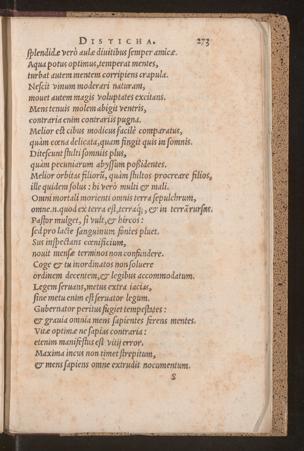 DISTICHA. 273
splendidæ verò aulæ diuitibus semper amicæ.
Aqua potus optimus, temperat mentes,
turbat autem mentem corripiens crapula.
Nescit vinum moderari naturam,
mouet autem magis voluptates excitans.
Mens tenuis molem abigit ventris,
contraria enim contrariis pugna.
Melior est cibus modicus facilè comparatus,
quàm cœna delicata, quam fingit quis in somnis.
Ditescunt stulti somniis plus,
quàm pecuniarum abyssum possidentes.
Melior orbitas filiorū, quàm stultos procreare filios,
ille quidem solus: hi verò multi & mali.
Omni mortali morienti omnis terra sepulchrum,
omne.n.quod ex terra est, terraq́;, & in terrā rursus.
Pastor mulget, si vult, & hircos:
sed pro lacte sanguinum fontes fluet.
Sus inspectans cœnificium,
nouit mensæ terminos non confundere.
Coge & tu inordinatos non soluere
ordinem decentem, & legibus accommodatum.
Legem seruans, metus extra iacias,
sine metu enim est seruator legum.
Gubernator peritus fugiet tempestates:
& grauia omnia mens sapientes ferens mentes.
Vitæ optimæ ne sapias contraria:
etenim manifestus est vitij error.
Maxima incus non timet strepitum,
& mens sapiens omne extrudit nocumentum.
S